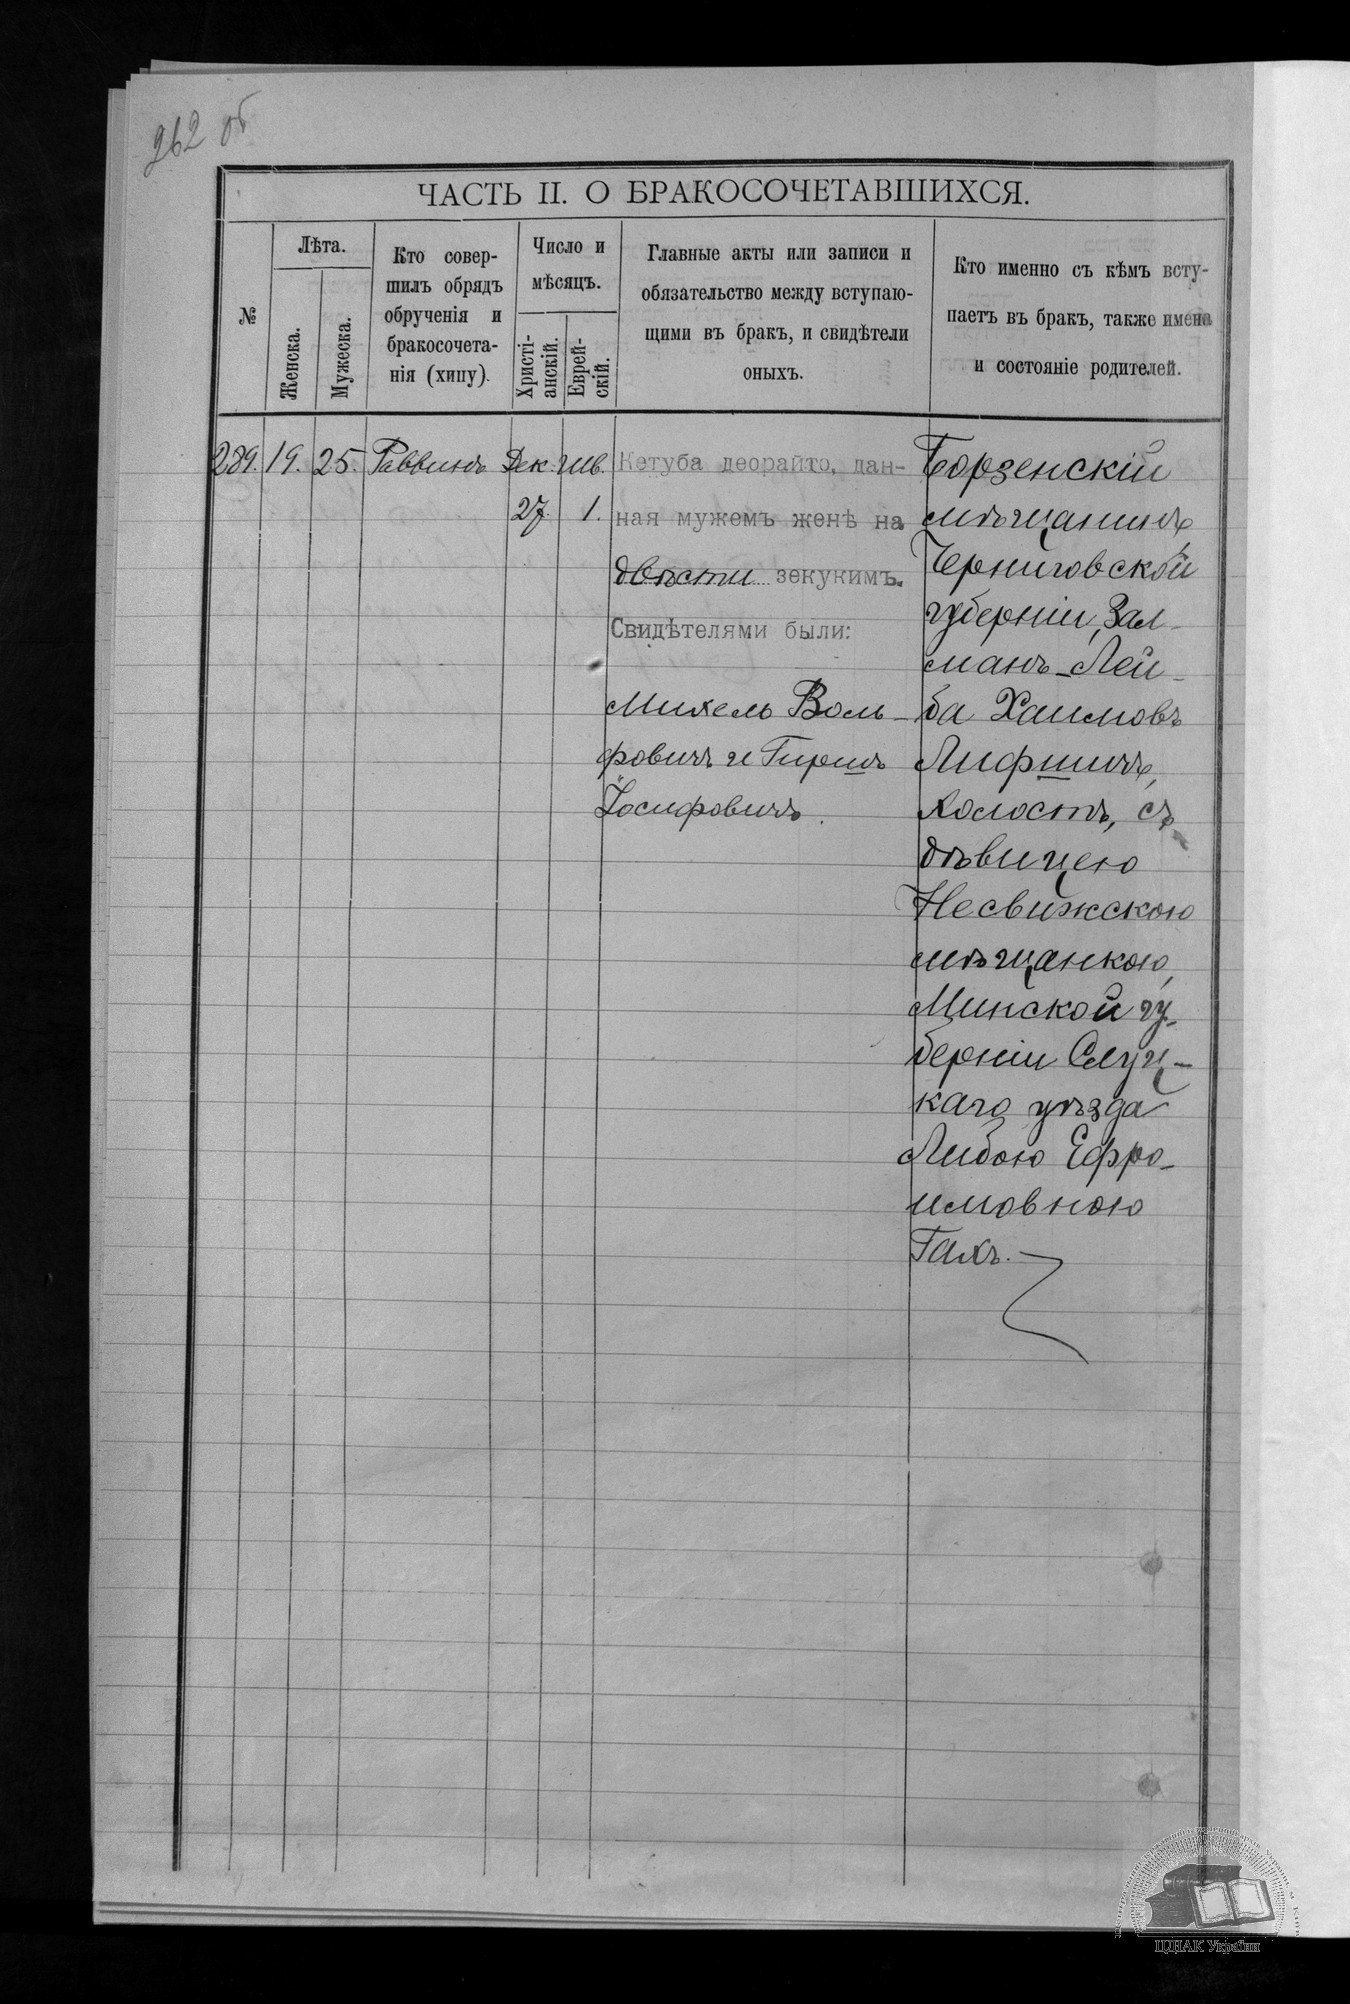 262 об
ЧАСТЬ II. О БРАКОСОЧЕТАВШИХСЯ.
№
Лѣта.
Женска.
Мужеска.
Кто совер-
шилъ обрядъ
обрученія и
бракосочета-
нія (хипу).
Число и
мѣсяцъ.
Христі-
анскій.
Еврей-
скій.
Главные акты или записи и
обязательство между вступаю-
щими въ бракъ, и свидѣтели
оныхъ.
Кто именно съ кѣмъ всту-
паетъ въ бракъ, также имена
и состояніе родителей.
289. 19. 25. Раввинъ Дек. Шв.
27. 1.
Кетуба деорайто, дан-
ная мужемъ женѣ на
двѣсти зекукимъ.
Свидѣтелями были:
Михель Воль-
фовичъ и Гиршъ
Іосифовичъ.
Борзенскій
мѣщанинъ,
Черниговской
губерніи, Зал-
манъ-Лей-
ба Хаимовъ
Лифшицъ,
холостъ, съ
дѣвицею
Несвижскою
мѣщанкою,
Минской гу-
берніи Слуц-
каго уѣзда
Либою Ефро-
имовною
Гахъ.
ЦДІАК України